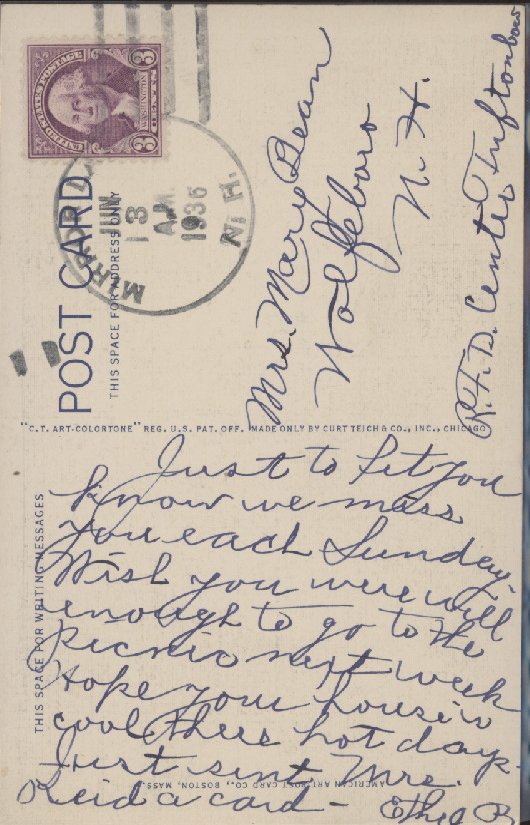 UNITED STATES POSTAGE
3 WASHINGTON 3
MIRROR LAKE
JUN
13
A.M.
1936
N.H.
POST CARD
THIS SPACE FOR ADDRESS ONLY
Mrs. Mary Bean
Wolfeboro
N. H.
R. F. D. Centre Tuftonboro
"C.T. ART-COLORTONE" REG. U.S. PAT. OFF. MADE ONLY BY CURT TEICH & CO., INC., CHICAGO
THIS SPACE FOR WRITING MESSAGES
Just to let you
know we miss
you each Sunday.
Wish you were well
enough to go to the
picnic next week
Hope your house is
cool these hot days.
Just sent Mrs.
Reid a card -
Ethel B
AMERICAN ART POST CARD CO., BOSTON, MASS.